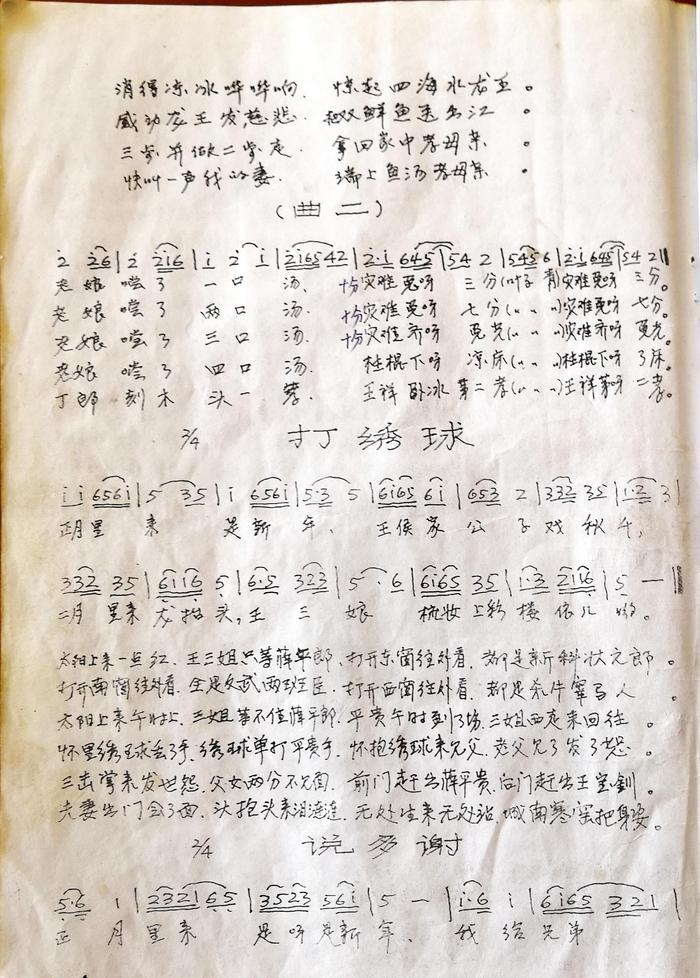 消得凉冰哗哗响. 惊起四海水龙王。
感动龙王发慈悲. 把双鲜鱼送出江。
三步并做二步走. 拿回家中孝母亲。
快叫一声我的妻. 端上鱼汤孝母亲。
(曲二)
2 26 | 2 216 | i 2 i | 2i6542 | 2·i 645 | 54 2 | 5456 | 2·i 645 | 54 2 ‖
老娘嚐了一口汤、十分灾难免呀三分(叶子青)灾难免呀三分。
老娘嚐了两口汤. 十分灾难免呀七分(〃 〃 〃)灾难免呀七分。
老娘嚐了三口汤. 十分灾难齐呀免光(〃 〃 〃)灾难齐呀免光。
老娘嚐了四口汤. 柱棍下呀凉床(〃 〃 〃)柱棍下呀了床。
丁郎刻木头一孝. 王祥卧冰第二孝(〃 〃 〃)王祥第呀二孝。
2/4 打绣球
i i 6561 | 5 35 | i 656i | 5·3 5 | 6i65 6i | 653 2 | 332 35 | 1·2 3 |
正月里来是新年、王侯家公子戏秋千,
332 35 | 6116 5 | 6·5 323 | 5 · 6 | 6i65 35 | 1·3 216 | 5 — ‖
二月里来龙抬头,王三娘梳妆上彩楼依儿哟。
太阳上来一点红. 王三姐只等薛平郎、打开东窗往外看. 都是新科状元郎。
打开南窗往外看. 全是文武两班臣. 打开西窗往外看. 都是杀牛宰马人
太阳上来午时上. 三姐等不值薛平郎. 平贵午时到了场. 三姐西走来回往。
怀里绣球丢了手. 绣球单打平贵手. 怀抱绣球来见父. 老父见了发了怒。
三击掌来发世怨. 父女两分不见面. 前门赶出薛平贵. 后门赶出王宝钏。
夫妻出门会了面. 头抱头来泪涟涟. 无处生来无处站. 城南寒窑把身安。
2/4 说多谢
5·6 1 | 232165 | 3523 561 | 5 — | i·6 i | 6i65 321 |
正月里来是呀是新年、我给兄弟